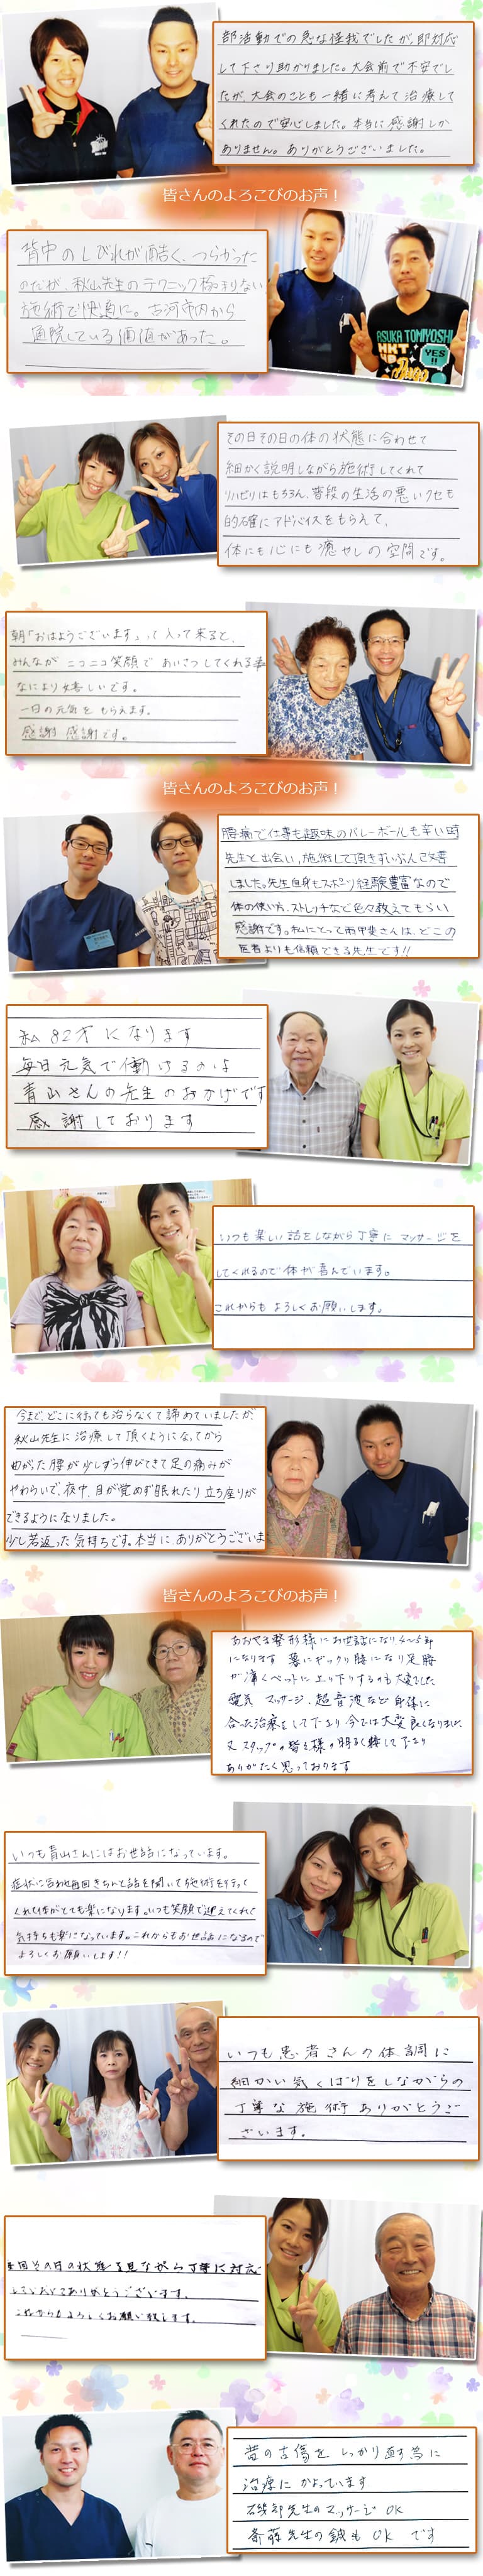 部活動での急な怪我でしたが、即対応
して下さり助かりました。大会前で不安でし
たが、大会のことも一緒に考えて治療して
くれたので安心しました。本当に感謝しか
ありません。ありがとうございました。
皆さんのよろこびのお声！
背中のしびれが酷く、つらかった
のだが、秋山先生のテクニック極まりない
施術で快適に。古河市内から
通院している価値があった。
ASUKA TOMIYOSHI
HKT
YES!!
その日その日の体の状態に合わせて
細かく説明しながら施術してくれて
リハビリはもちろん、普段の生活の悪いクセも
的確にアドバイスをもらえて、
体にも心にも癒やしの空間です。
朝「おはようございます」って入って来ると、
みんながニコニコ笑顔であいさつしてくれる事
なにより嬉しいです。
一日の元気をもらえます。
感謝感謝です。
皆さんのよろこびのお声！
腰痛で仕事も趣味のバレーボールも辛い時
先生と出会い、施術して頂きずいぶん改善
しました。先生自身もスポーツ経験豊富なので
体の使い方、ストレッチなど色々教えてもらい
感謝です。私にとって雨甲斐さんは、どこの
医者よりも信頼できる先生です!!
私82才になります
毎日元気で働けるのは
青山さんの先生のおかげです
感謝しております
いつも楽しい話をしながら丁寧にマッサージを
してくれるので体が喜んでいます。
これからもよろしくお願いします。
今まで、どこに行っても治らなくて諦めていましたが、
秋山先生に治療して頂くようになってから
曲がった腰が少しずつ伸びてきて足の痛みが
やわらいで、夜中、目が覚めず眠れたり立ち座りが
できるようになりました。
少し若返った気持ちです。本当にありがとうございま
皆さんのよろこびのお声！
あおやま整形様にお世話になり4〜5年
になります 暮にギックリ腰になり足腰
が凄くベットに上り下りするのも大変でした
電気 マッサージ、超音波など身体に
合った治療をして下さり今では大変良くなりました
又スタッフの皆々様の明るく接して下さり
ありがたく思っております
いつも青山さんにはお世話になっています。
症状に合わせ毎回きちんと話を聞いて施術を行って
くれて体がとても楽になります。いつも笑顔で迎えてくれて
気持ちも楽になっています。これからもお世話になるので
よろしくお願いします!!
いつも患者さんの体調に
細かい気くばりをしながらの
丁寧な施術ありがとうご
ざいます。
毎回その日の状態を見ながら丁寧に対応
していただいてありがとうございます。
これからもよろしくお願い致します。
昔の古傷をしっかり直す為に
治療にかよっています
磯部先生のマッサージOK
斎藤先生の鍼もOKです